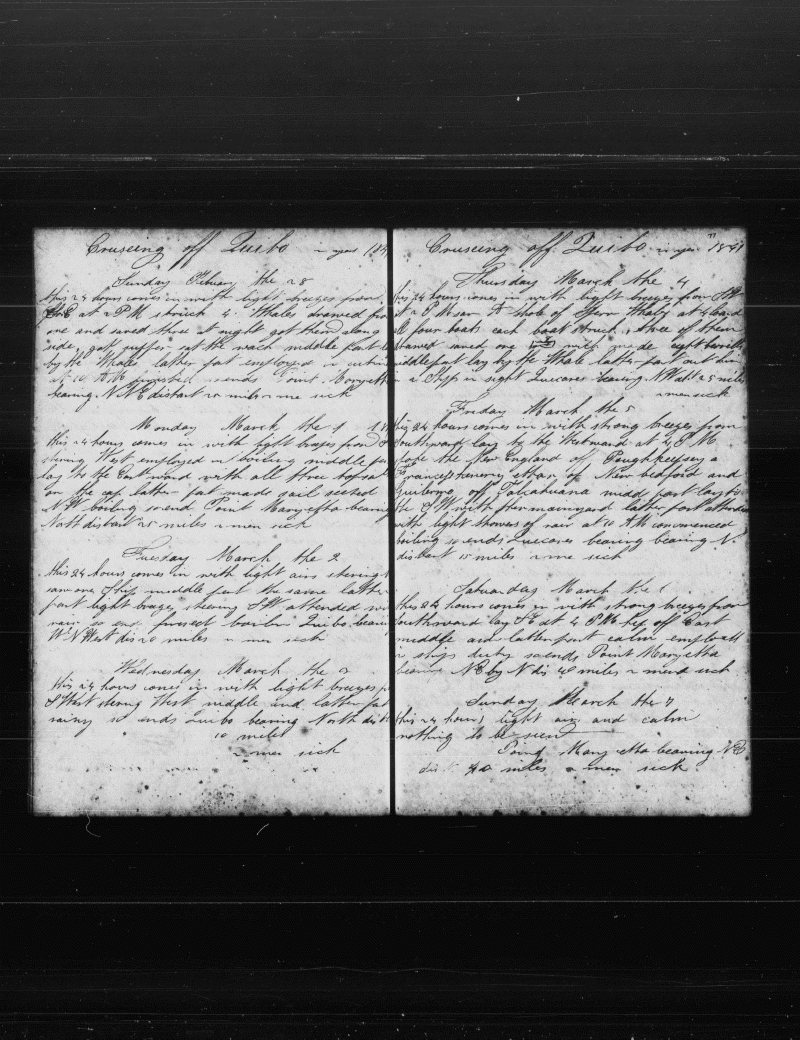 Cruseing off Quibo in year 184
Sunday Febuary the 28
this 24 hours comes in with light breezes from
at 2 PM struck 4 Whales drawed from
one and saved three at night got them along
side
by the Whales latter part employed in cuting
at 10 AM finished soends Point Maryetta
bearing NNE distant 20 miles 2 me sick
Monday March the 1
this 24 hours comes in with light breezes from
stering West employed in boiling middle par
lay to the Eastward with all three topsa
on the cap latter part made sail
NW boiling soend Point Maryetta bearing
North distant 25 miles 2 men sick
Tuesday March the 2
this 24 hours comes in with light airs stering
saw one Ship middle part the same latter
part light brezes stering SW attended wi
rain so end boilin Quibo bearing
W N West dis 20 miles 2 men sick
Wednesday March the 3
this 24 hours comes in with light breezes
S West stering West middle and latter pa
rainy so ends Quibo bearing North dist
10 miles
2 men sick
Cruseing off Quibo in year 1841
Thursday March the 4
this 24 hours comes in with light breezes from SW
at 2 PM saw A shole of Sperr Whals at 4 lowrd
four boats each boat struck three of them
drawed saved one wich made eight barrells
middle part lay by the Whale latter part cut him
in a Ship in sight Quicaras bearing NW dist 25 miles
2 men sick
Friday March the 5
this 24 hours comes in with strong breezes from
Southward lay to the Westward at 4 PM
spoke the New England of Poughkeepsey a
Frances of New bedford and
of Talcahuana midd part lay to
the SW with mainyard latter part attended
with light showers of rain at 10 AM commenced
boiling so ends Quicaras bearing bearing N
distant 15 miles 2 me sick
Satuarday March the
this 24 hours comes in with strong breezes from
Southward lay SE at 4 PM off East
middle and latter part calm employed
in ships duty soends Point Maryetta
bearing NE by N dis 40 miles 2 men sick
Sunday March the 7
this 24 hours light airs and calm
nothing to be seen
Poing Mary etta bearing NE
dis 40 miles 2 men sick